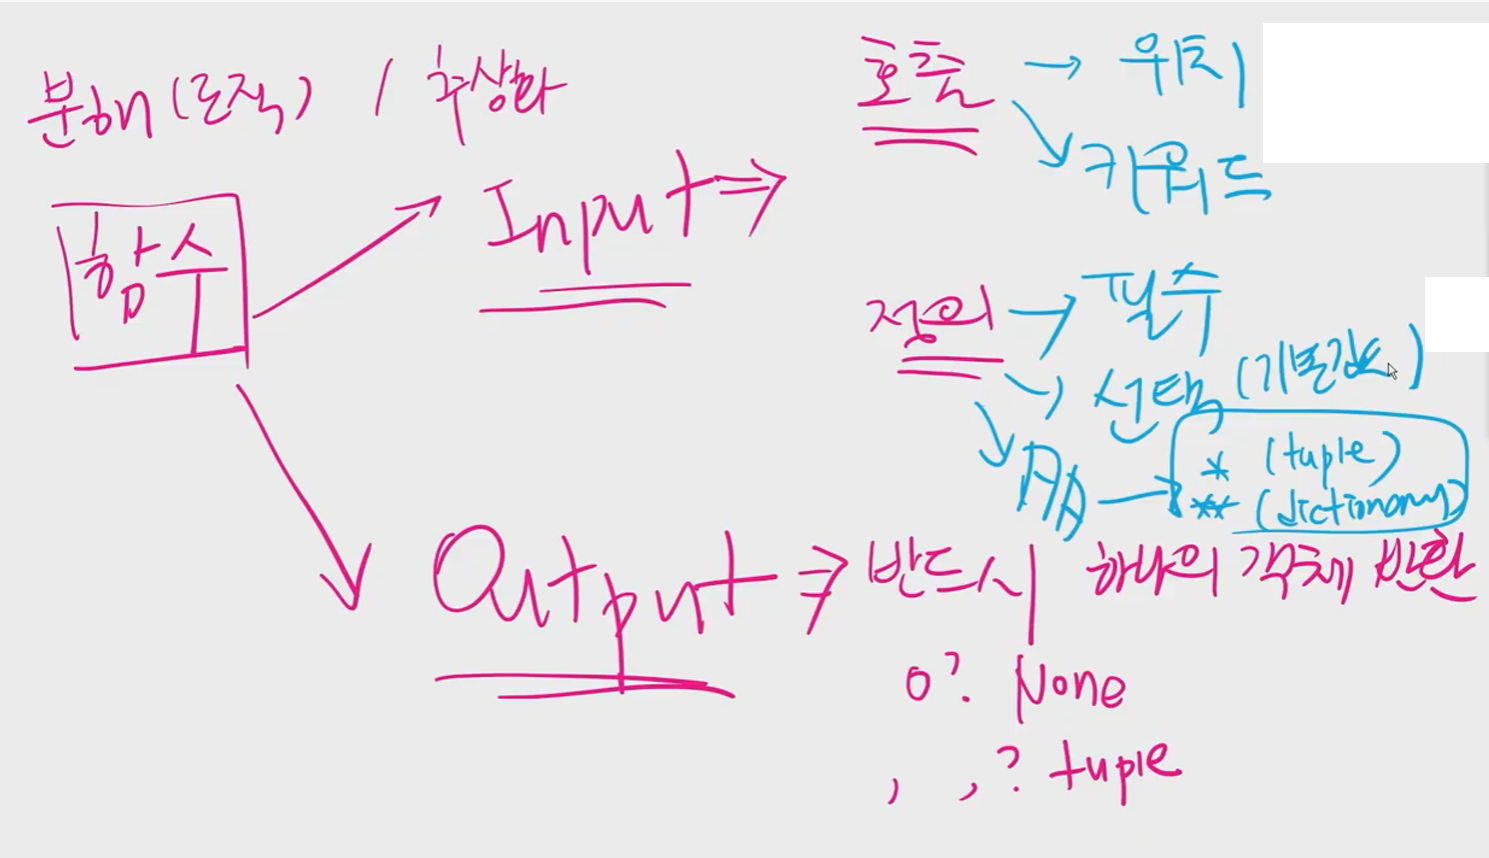 분해(로직) / 추상화
함수
Input
호출 → 위치
키워드
정의 → 필수
선택 (기본값도)
* (tuple)
** (dictionary)
Output ⇒ 반드시 하나의 객체 반환
0? None
, , ? tuple